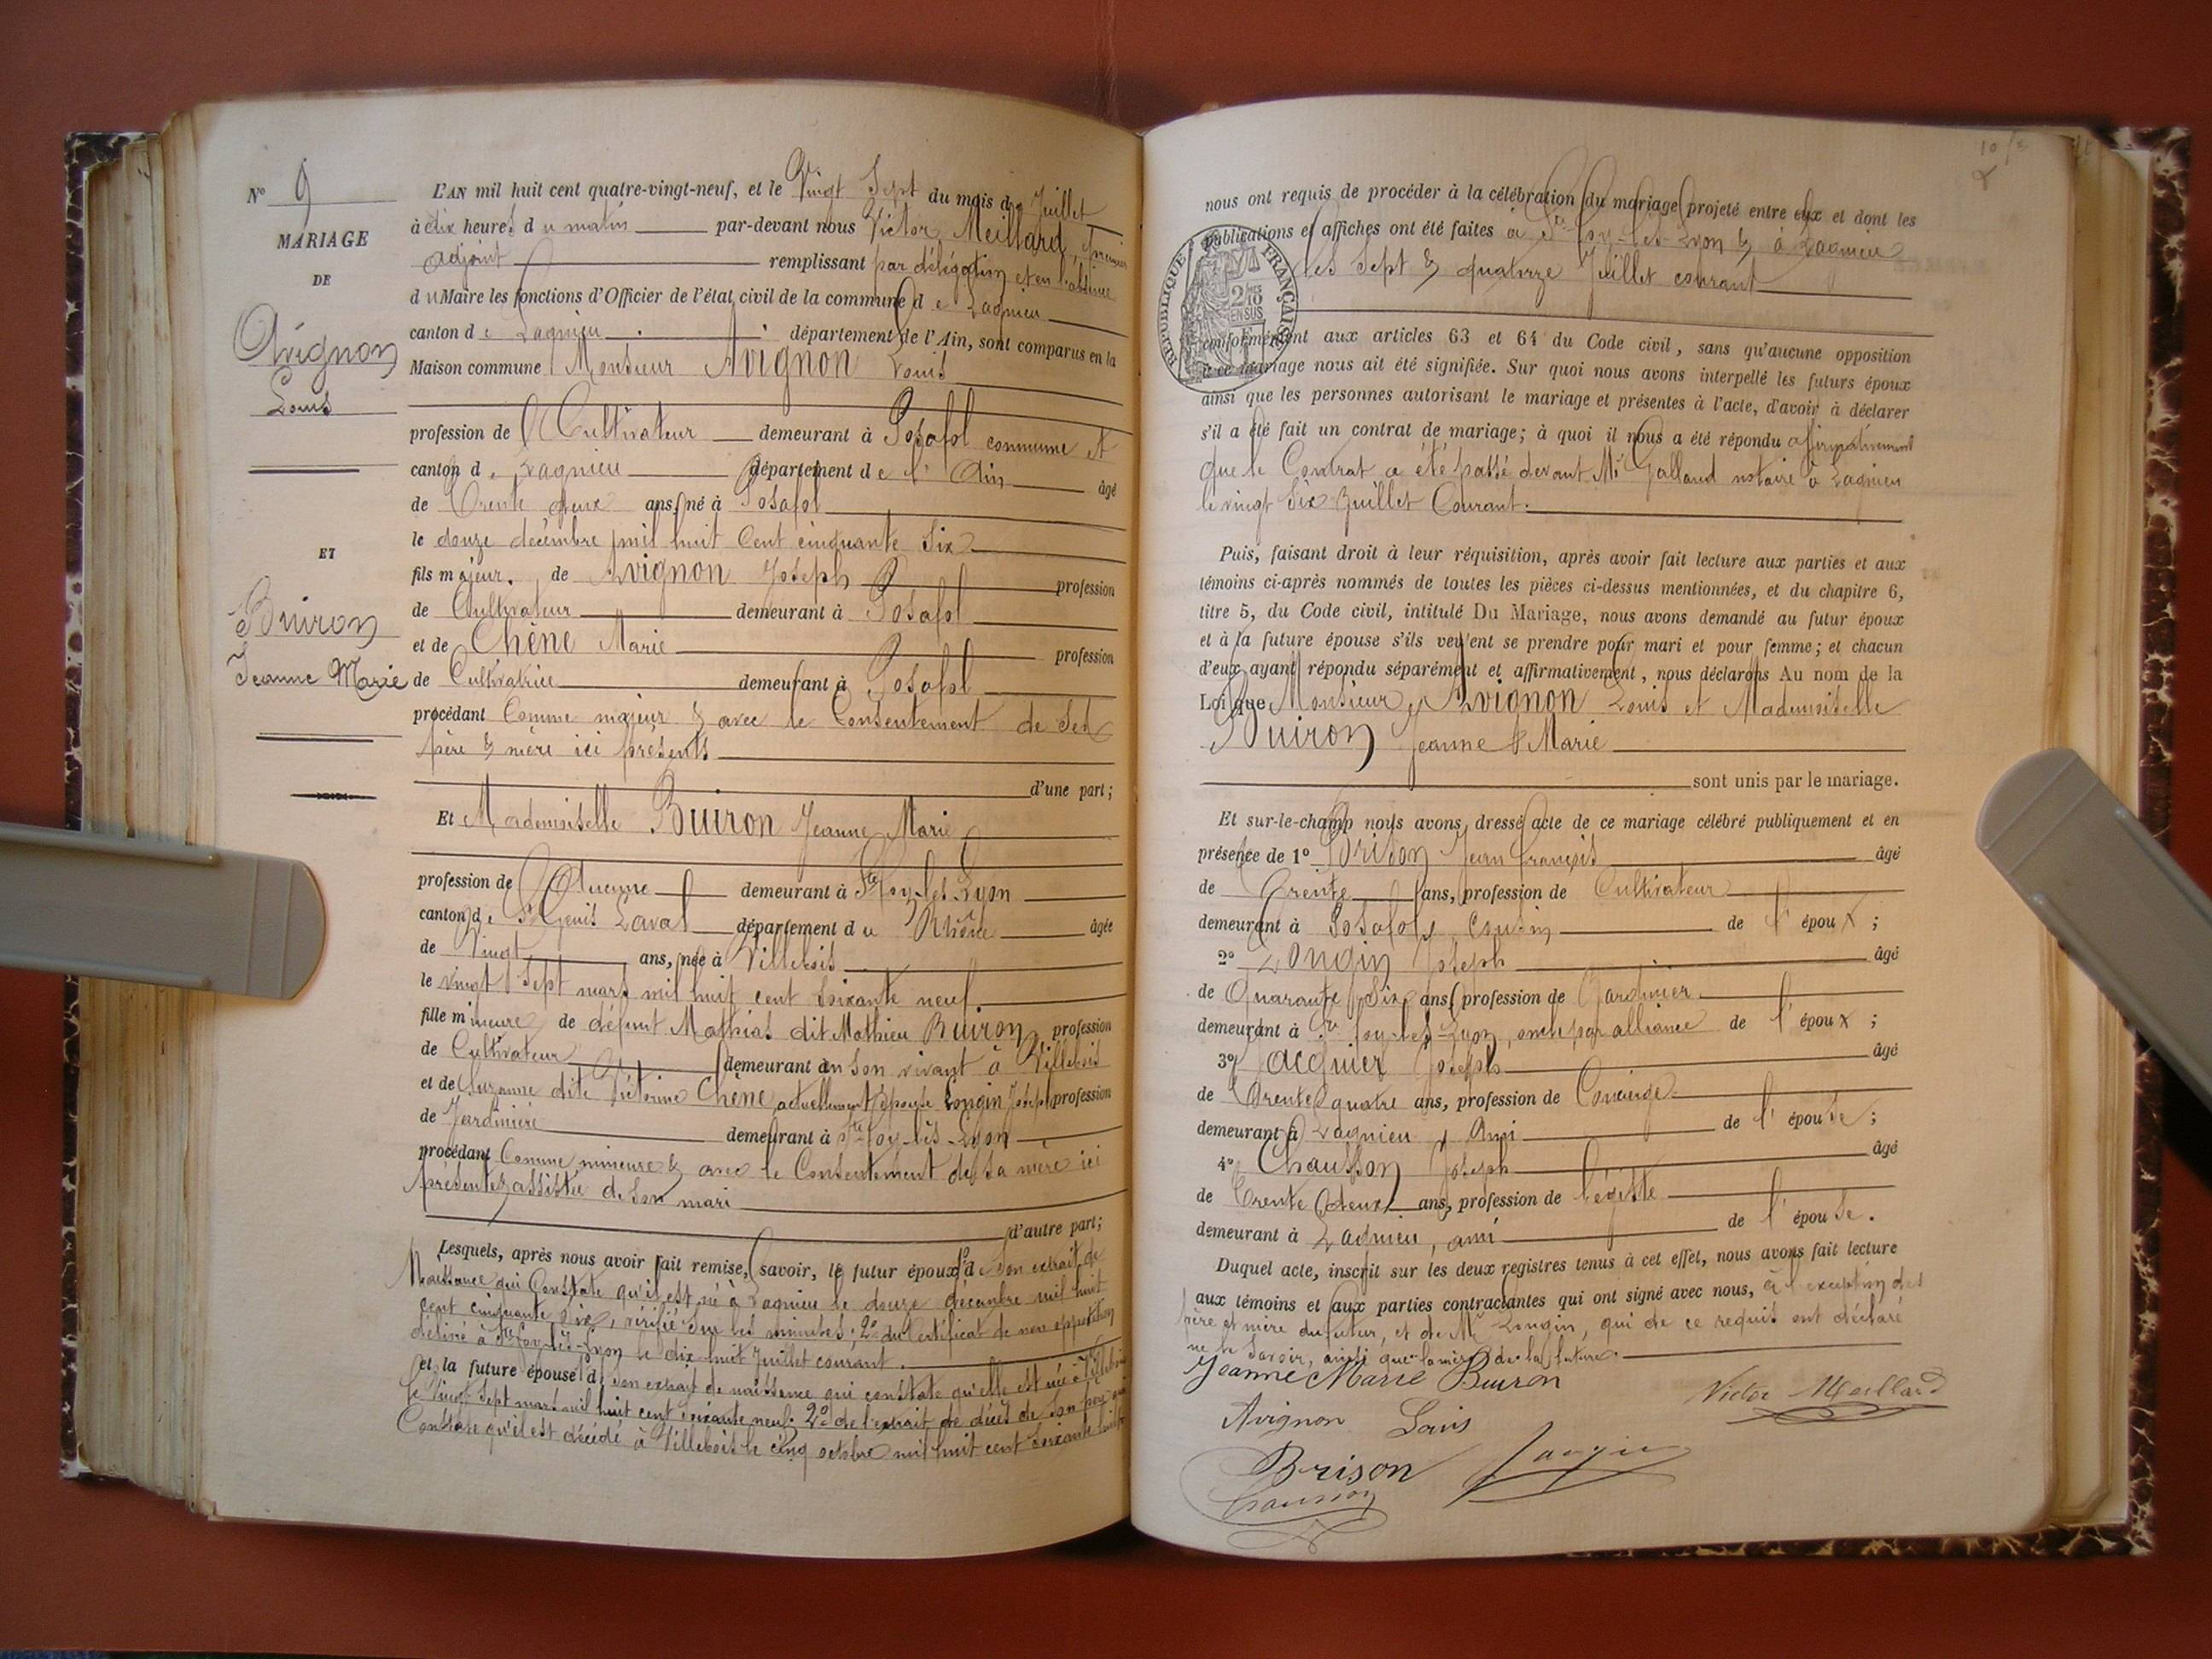 N° 9
MARIAGE
DE
Avignon
Louis
ET
Buiron
Jeanne Marie
L'AN mil huit cent quatre-vingt-neuf, et le Vingt Sept du mois de Juillet
à dix heures du matin par-devant nous Victor Meillard, premier
adjoint remplissant par délégation et en l'absence
du Maire les fonctions d'Officier de l'état civil de la commune de Lagnieu
canton de Lagnieu département de l'Ain, sont comparus en la
Maison commune Monsieur Avignon Louis
profession de Cultivateur demeurant à Posafol commune et
canton de Lagnieu département de l'Ain âgé
de Trente deux ans, né à Posafol
le douze décembre mil huit Cent cinquante Six
fils majeur, de Avignon Joseph profession
de Cultivateur demeurant à Posafol
et de Chêne Marie profession
de Cultivatrice demeurant à Posafol
procédant Comme majeur & avec le Consentement de Ses
père & mère ici présents
d'une part;
Et Mademoiselle Buiron Jeanne Marie
profession de Aucune demeurant à Ste Foy-les-Lyon
canton de St Genis Laval département du Rhône âgée
de Vingt ans, née à Villebois
le vingt Sept mars mil huit cent soixante neuf
fille mineure de défunt Mathias dit Mathieu Buiron profession
de Cultivateur demeurant en son vivant à Villebois
et de Suzanne dite Victorine Chêne actuellement épouse Longin Joseph profession
de Jardinière demeurant à Ste Foy-lès-Lyon
procédant Comme mineure & avec le Consentement de sa mère ici
présente & assistée de son mari
d'autre part;
Lesquels, après nous avoir fait remise, savoir, le futur époux 1° de Son extrait de
Naissance qui Constate qu'il est né à Lagnieu le douze décembre mil huit
cent cinquante six, vérifié sur les minutes; 2° du Certificat de non opposition
délivré à Ste Foy-lès-Lyon le dix huit Juillet courant.
et la future épouse 1° de son extrait de naissance qui constate qu'elle est née à Villebois
le Vingt Sept mars mil huit cent soixante neuf. 2° de l'extrait de décès de son père qui
Constate qu'il est décédé à Villebois le cinq octobre mil huit cent soixante
10
nous ont requis de procéder à la célébration du mariage projeté entre eux et dont les
publications et affiches ont été faites à Ste Foy-les-Lyon & à Lagnieu
les Sept & quatorze Juillet courant
RÉPUBLIQUE FRANÇAISE
2/10 EN SUS
conformément aux articles 63 et 64 du Code civil, sans qu'aucune opposition
à ce mariage nous ait été signifiée. Sur quoi nous avons interpellé les futurs époux
ainsi que les personnes autorisant le mariage et présentes à l'acte, d'avoir à déclarer
s'il a été fait un contrat de mariage; à quoi il nous a été répondu affirmativement
que le Contrat a été passé devant Me Galland notaire à Lagnieu
le vingt Six Juillet Courant.
Puis, faisant droit à leur réquisition, après avoir fait lecture aux parties et aux
témoins ci-après nommés de toutes les pièces ci-dessus mentionnées, et du chapitre 6,
titre 5, du Code civil, intitulé Du Mariage, nous avons demandé au futur époux
et à la future épouse s'ils veulent se prendre pour mari et pour femme; et chacun
d'eux ayant répondu séparément et affirmativement, nous déclarons Au nom de la
Loi que Monsieur Avignon Louis et Mademoiselle
Buiron Jeanne Marie
sont unis par le mariage.
Et sur-le-champ nous avons dressé acte de ce mariage célébré publiquement et en
présence de 1° Brison Jean François âgé
de Trente ans, profession de Cultivateur
demeurant à Posafol, Cousin de l'époux;
2° Longin Joseph âgé
de Quarante Six ans, profession de Jardinier
demeurant à Ste Foy-les-Lyon, oncle par alliance de l'époux;
3° Jacquier Joseph âgé
de Trente quatre ans, profession de Concierge
demeurant à Lagnieu, Ami de l'épouse;
4° Chausson Joseph âgé
de Trente deux ans, profession de Légiste
demeurant à Lagnieu, ami de l'épouse.
Duquel acte, inscrit sur les deux registres tenus à cet effet, nous avons fait lecture
aux témoins et aux parties contractantes qui ont signé avec nous, à l'exception des
père et mère du futur, et de Mr Longin, qui de ce requis ont déclaré
ne le Savoir, ainsi que la mère de la future.
Jeanne Marie Buiron
Victor Meillard
Avignon Louis
Brison
Chausson